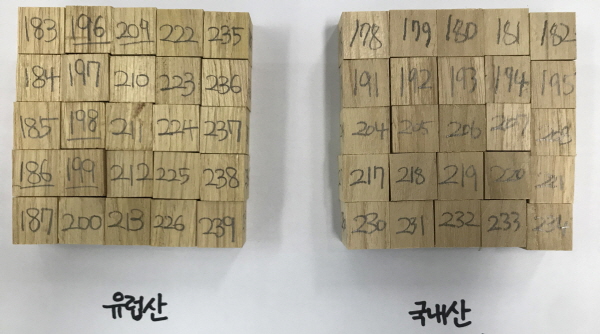 183 196 209 222 235
184 197 210 223 236
185 198 211 224 237
186 199 212 225 238
187 200 213 226 239
유럽산
178 179 180 181 182
191 192 193 194 195
204 205 206 207
217 218 219 220
230 231 232 233 234
국내산